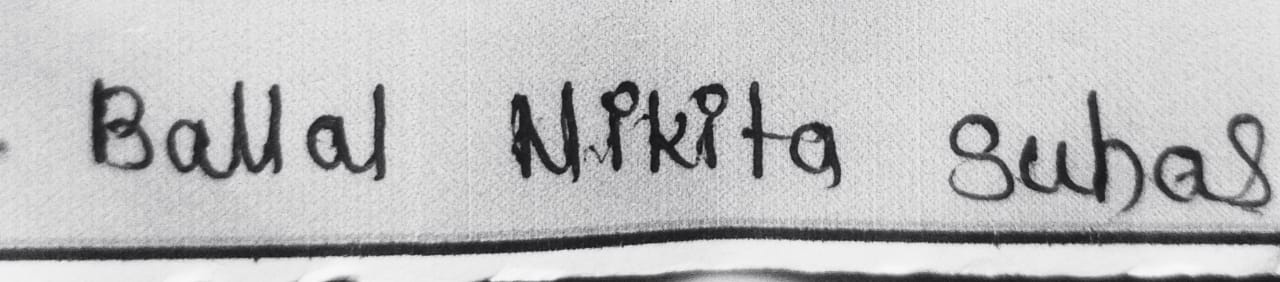 Ballal Nikita Suhas